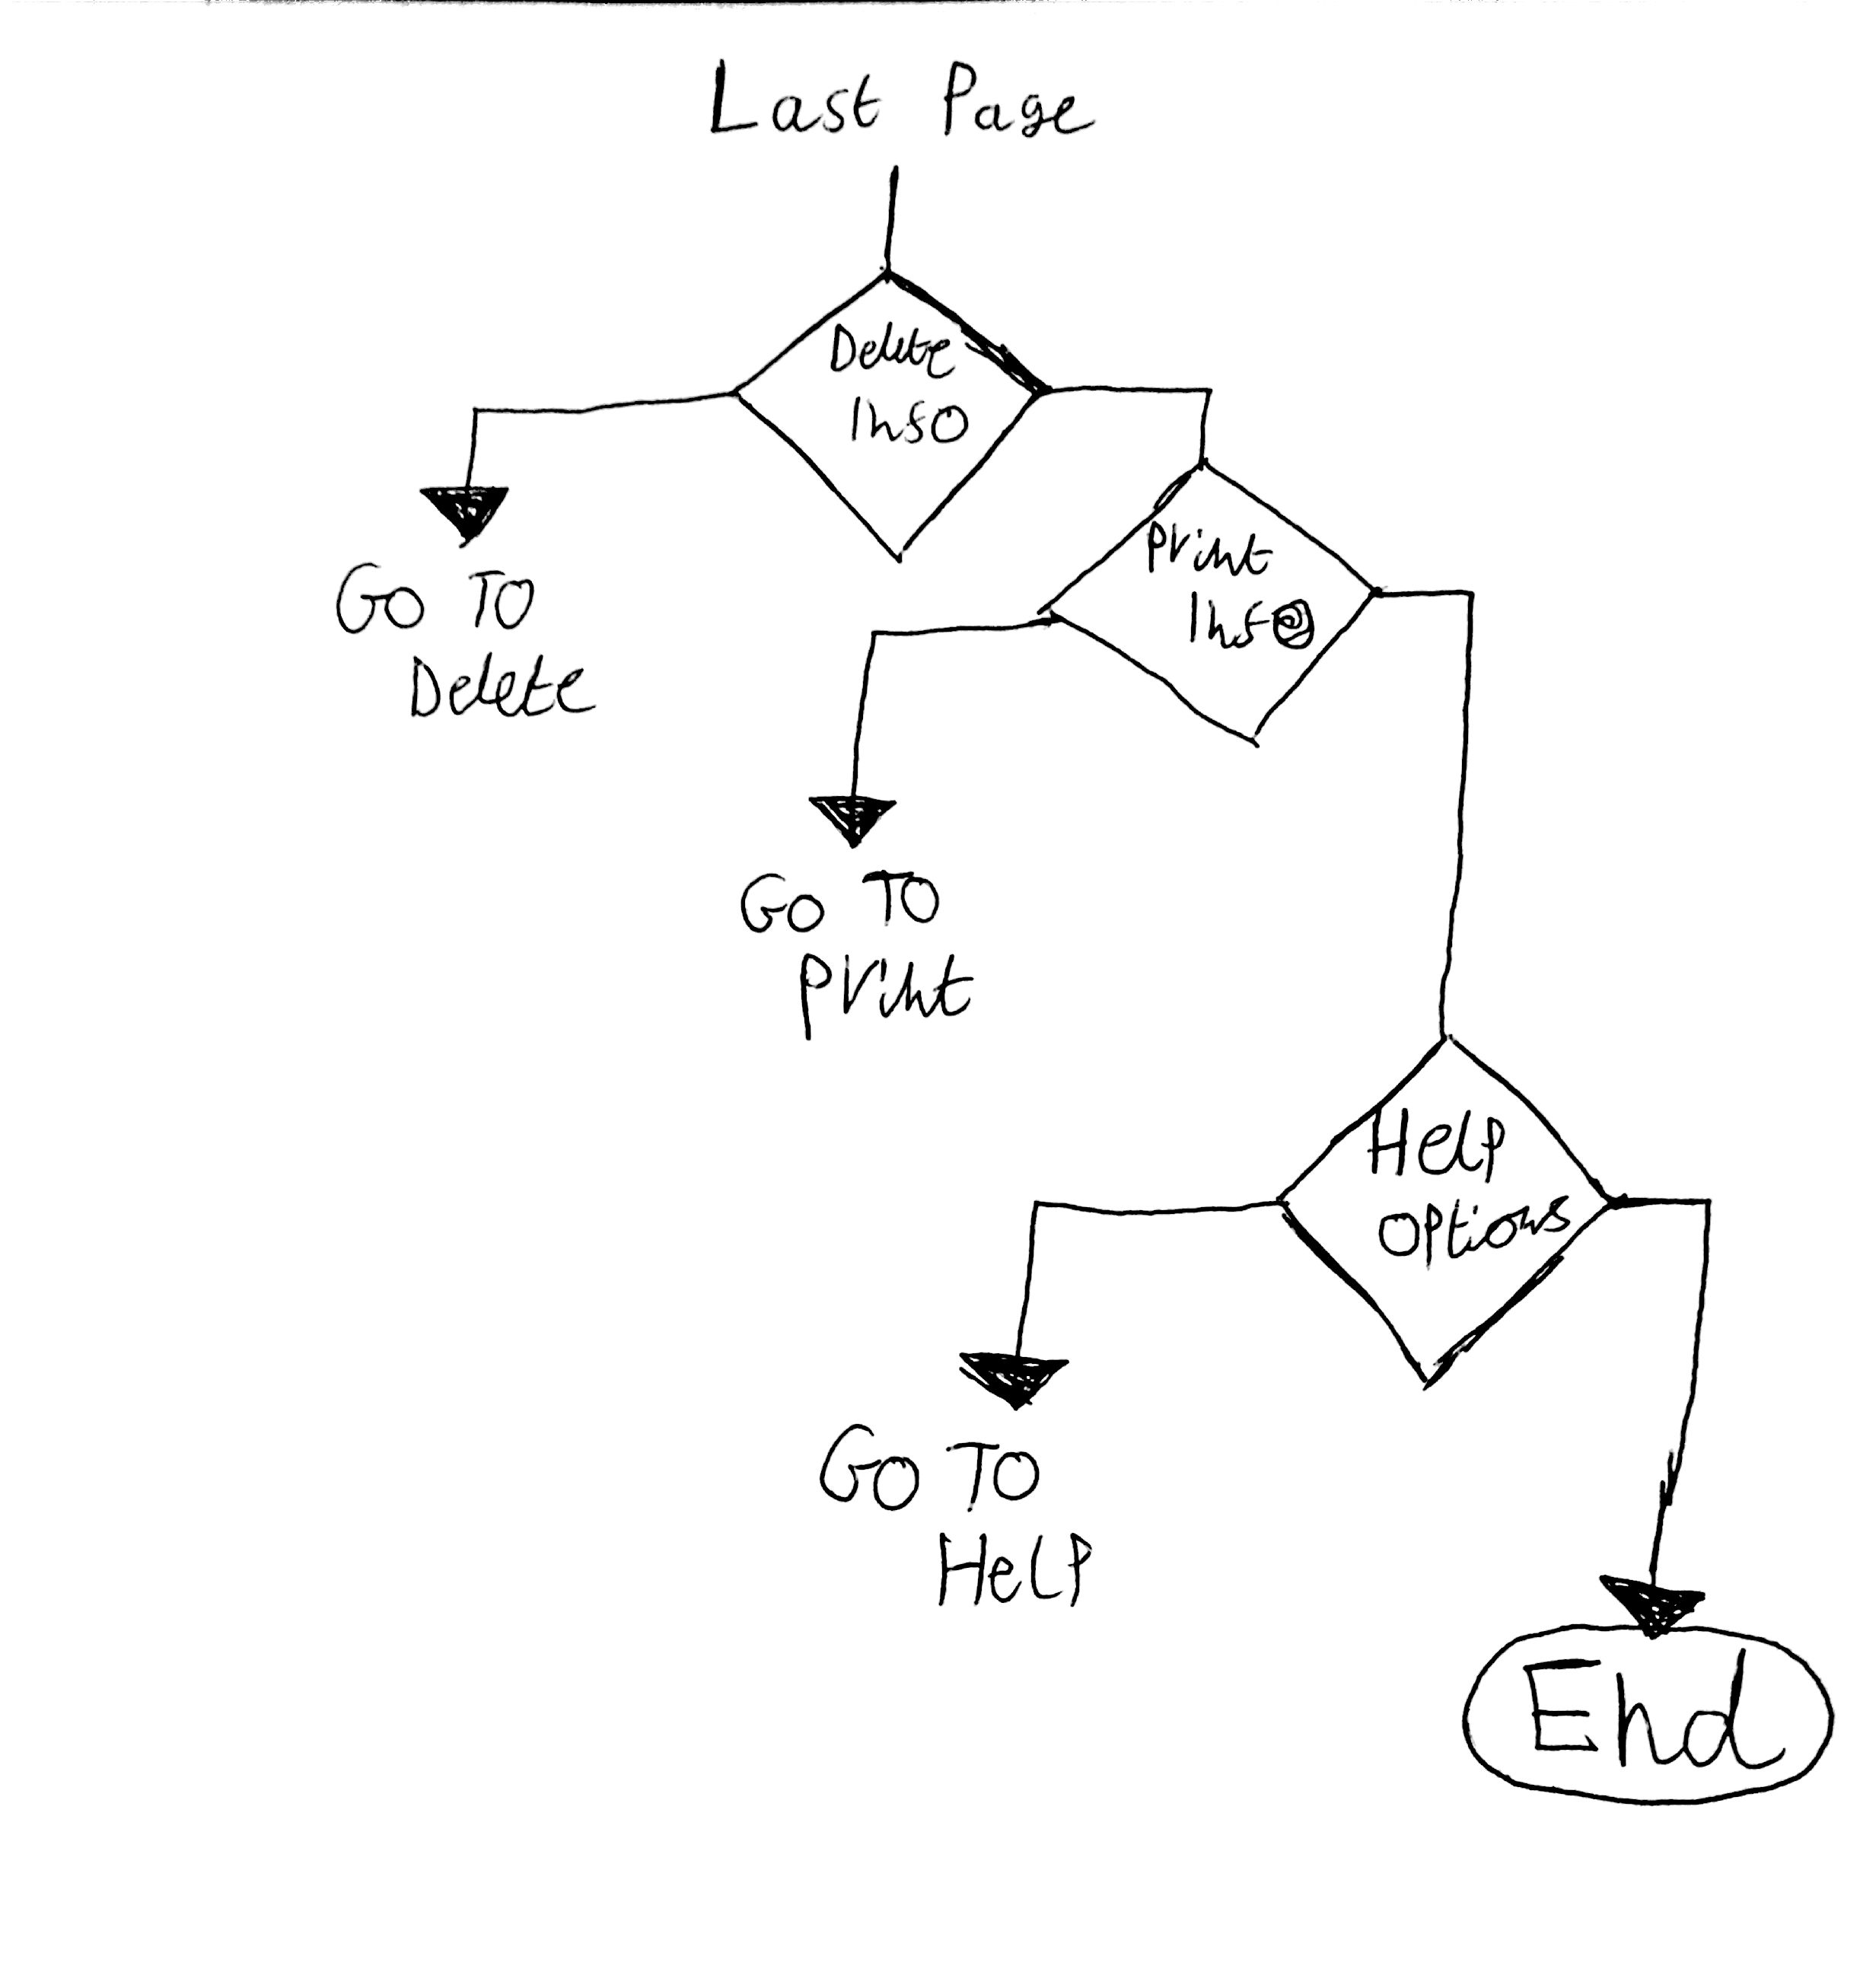 Last Page
Delete
Info
Go To
Delete
Print
Info
Go To
Print
Help
Options
Go To
Help
End